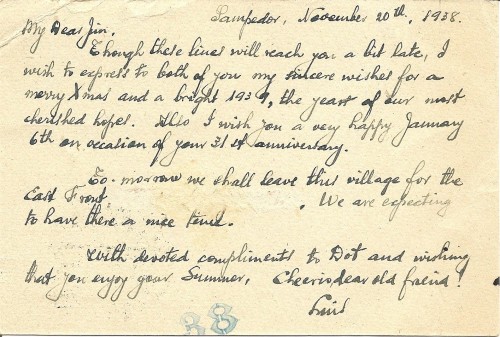 Sampedor, November 20th., 1938.
My Dear Jim,
Though these lines will reach you a bit late, I
wish to express to both of you my sincere wishes for a
merry Xmas and a bright 1939, the year of our most
cherished hopes. Also I wish you a very happy January
6th on occation of your 31st anniversary.
To-morrow we shall leave this village for the
East Front. We are expecting
to have there a nice time.
With devoted compliments to Dot and wishing
that you enjoy your Summer, Cheerio, dear old freind!
Luis
38